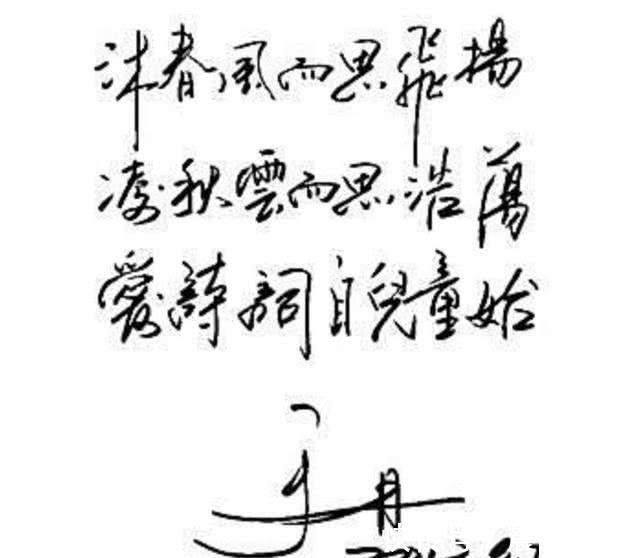 沐春風而思飛揚
凌秋雲而思浩蕩
愛詩詞自兒童始
于丹